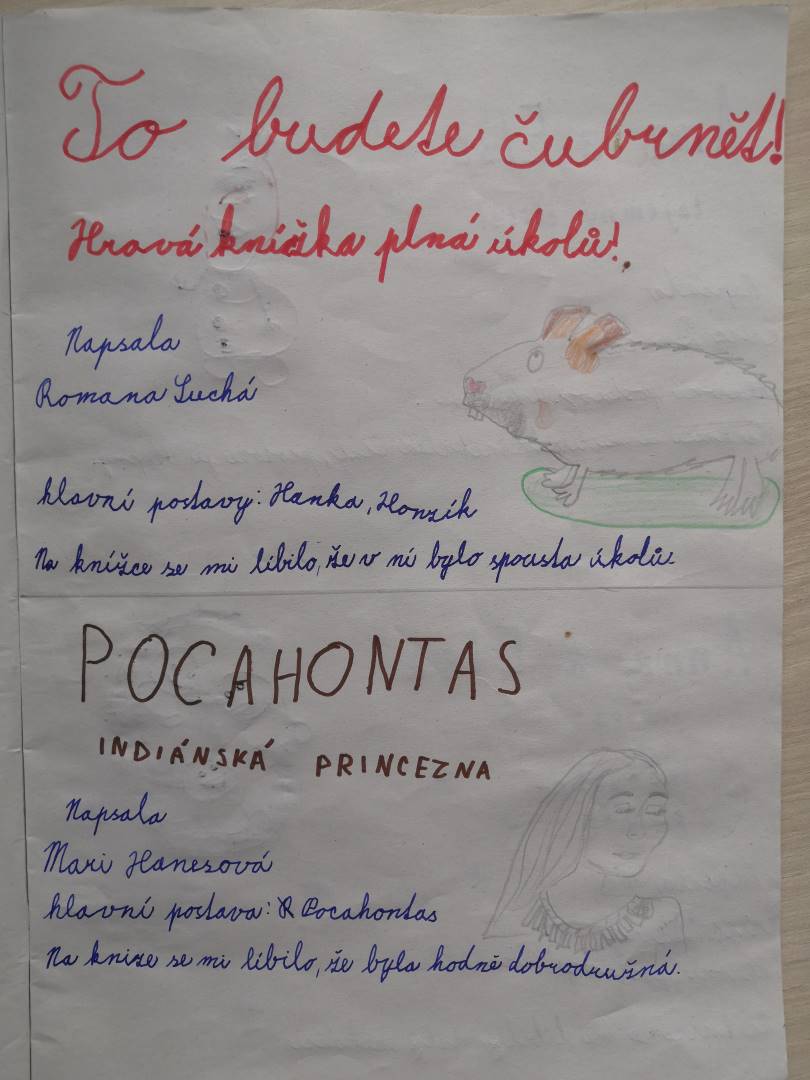 To budete čubrnět!
Hravá knížka plná úkolů!
Napsala
Romana Suchá
hlavní postavy: Hanka, Honzík
Na knížce se mi líbilo, že v ní bylo spousta úkolů.
POCAHONTAS
INDIÁNSKÁ PRINCEZNA
Napsala
Mari Hanesová
hlavní postava: Pocahontas
Na knize se mi líbilo, že byla hodně dobrodružná.